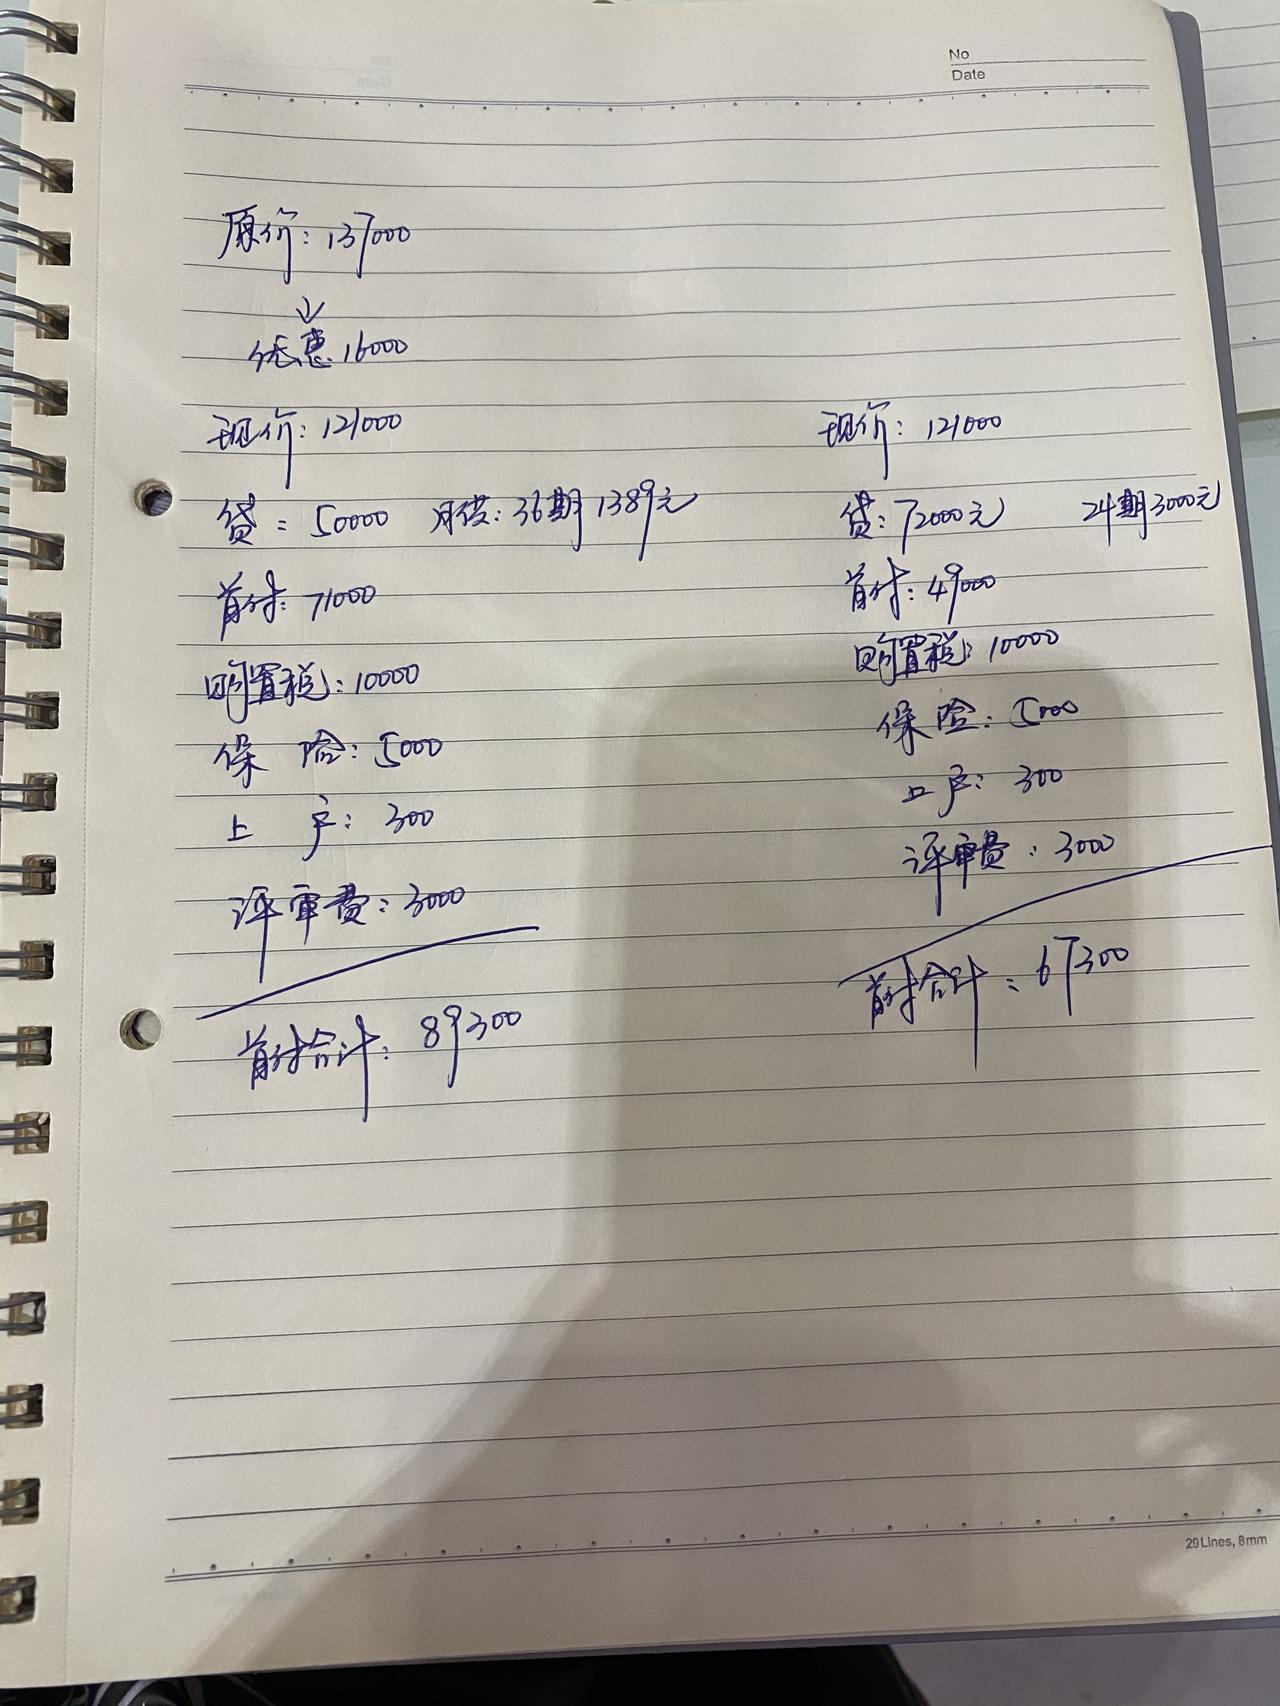 No
Date
原价：137000
↓
优惠 16000
现价：121000
贷：50000 月供：36期1389元
首付：71000
购置税：10000
保 险：5000
上 户：300
评审费：3000
首付合计：89300
现价：121000
贷：72000元 24期3000元
首付：49000
购置税：10000
保 险：5000
上户：300
评审费：3000
首付合计：67300
29Lines, 8mm